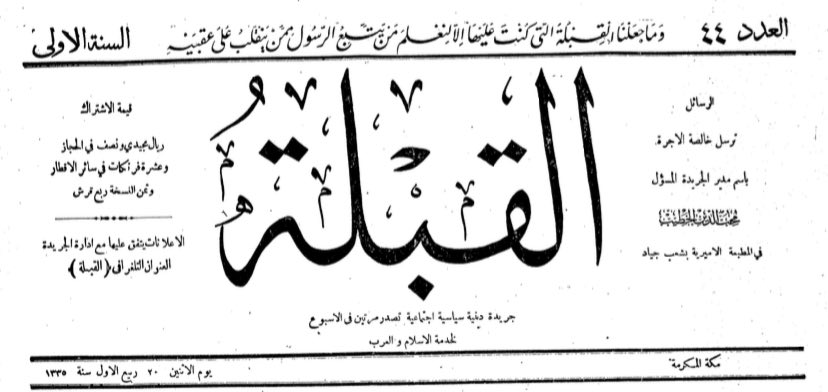 العدد ٤٤
وَمَا جَعَلْنَا الْقِبْلَةَ الَّتِي كُنْتَ عَلَيْهَا إِلَّا لِنَعْلَمَ مَنْ يَتَّبِعُ الرَّسُولَ مِمَّنْ يَنْقَلِبُ عَلَى عَقِبَيْهِ
السنة الاولى
الرسائل
ترسل خالصة الاجرة
باسم مدير الجريدة المسؤل
محب الدين الخطيب
في المطبعة الاميرية بشعب جياد
القبلة
قيمة الاشتراك
ريال مجيدي ونصف في الحجاز
وعشرة فرنكات في سائر الاقطار
وثمن النسخة ربع قرش
الاعلانات يتفق عليها مع ادارة الجريدة
العنوان التلغرافي (القبلة)
جريدة دينية سياسية اجتماعية تصدر مرتين في الاسبوع
لخدمة الاسلام و العرب
مكة المكرمة
يوم الاثنين ٢٠ ربيع الاول سنة ١٣٣٥